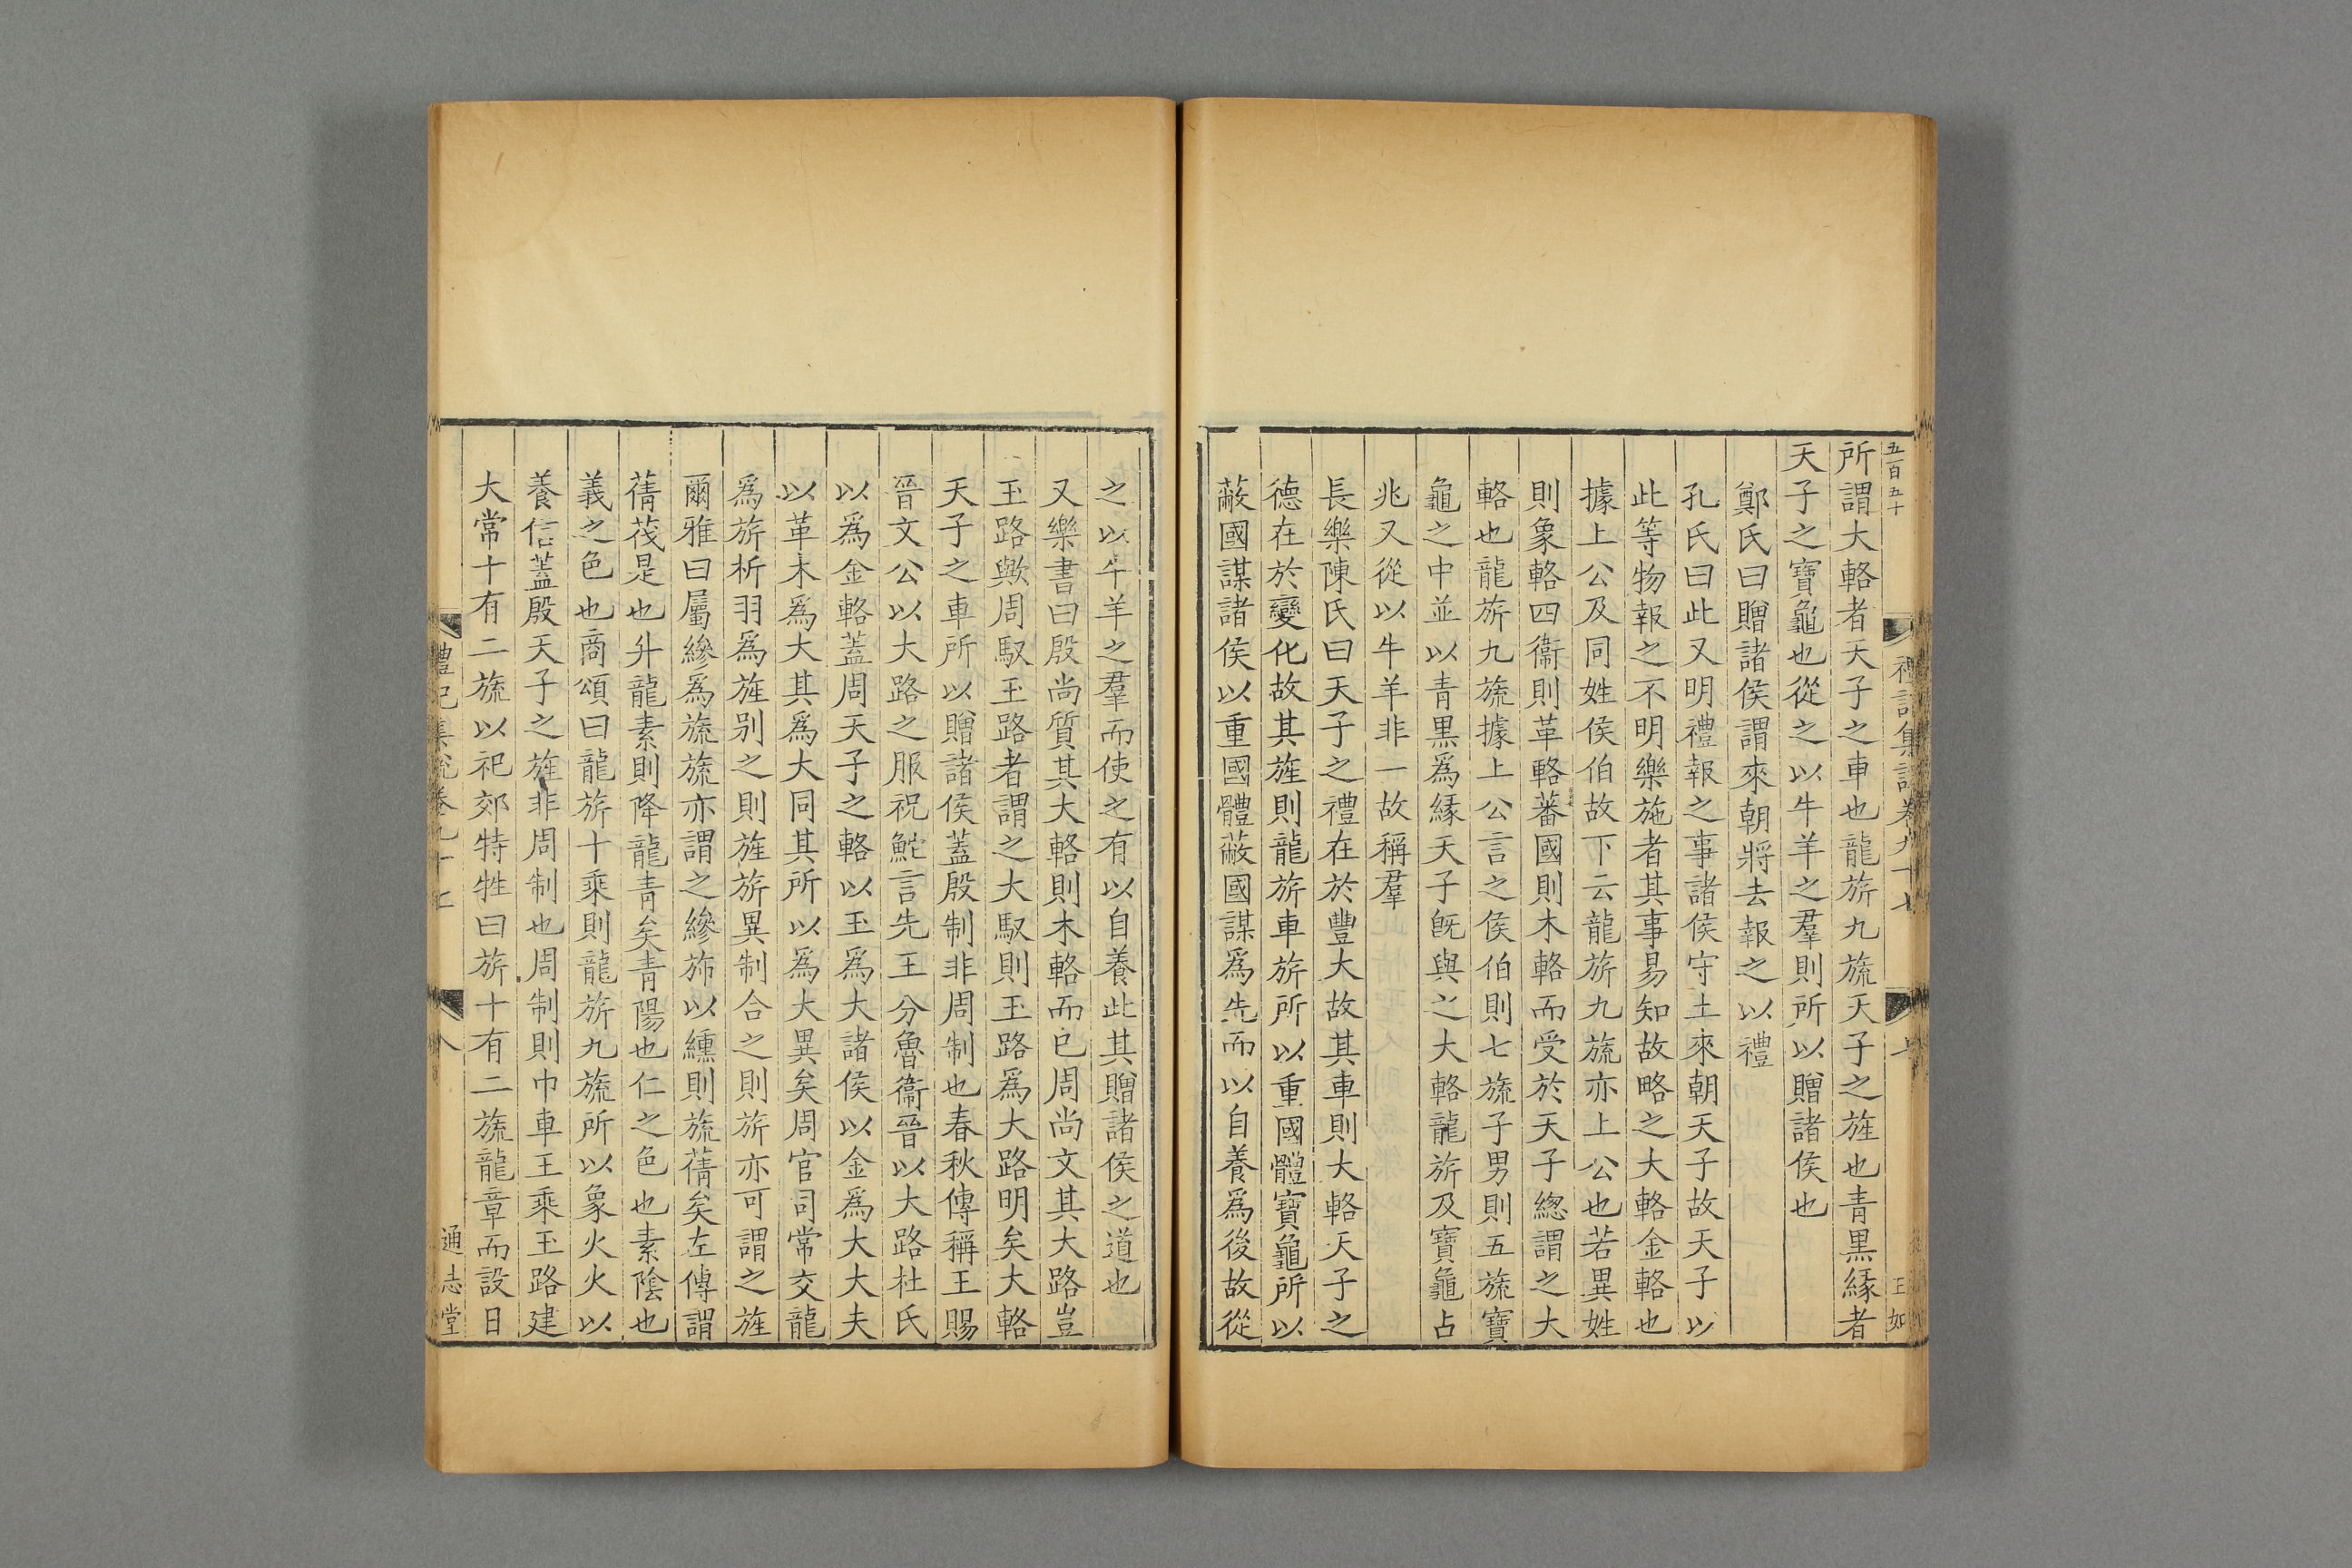 五百五十
禮記集說卷九十七
七
王如
所謂大輅者天子之車也龍旂九旒天子之旌也青黒緣者
天子之寶龜也從之以牛羊之羣則所以贈諸侯也
鄭氏曰贈諸侯謂來朝將去報之以禮
孔氏曰此又明禮報之事諸侯守土來朝天子故天子以
此等物報之不明樂施者其事易知故略之大輅金輅也
據上公及同姓侯伯故下云龍旂九旒亦上公也若異姓
則象輅四衞則革輅蕃國則木輅而受於天子緫謂之大
輅也龍旂九旒據上公言之侯伯則七旒子男則五旒寶
龜之中並以青黒為緣天子旣與之大輅龍旂及寶龜占
兆又從以牛羊非一故稱羣
長樂陳氏曰天子之禮在於豐大故其車則大輅天子之
德在於變化故其旌則龍旂車旂所以重國體寶龜所以
蔽國謀諸侯以重國體蔽國謀爲先而以自養爲後故從
之以牛羊之羣而使之有以自養此其贈諸侯之道也
又樂書曰殷尚質其大輅則木輅而已周尚文其大路豈
玉路歟周馭玉路者謂之大馭則玉路爲大路明矣大輅
天子之車所以贈諸侯蓋殷制非周制也春秋傳稱王賜
晉文公以大路之服祝鮀言先王分魯衞晉以大路杜氏
以爲金輅蓋周天子之輅以玉爲大諸侯以金爲大大夫
以革木爲大其爲大同其所以爲大異矣周官司常交龍
爲旂析羽爲旌别之則旌旂異制合之則旂亦可謂之旌
爾雅曰屬縿爲旒旒亦謂之縿斾以纁則旒蒨矣左傳謂
蒨茷是也升龍素則降龍青矣青陽也仁之色也素陰也
義之色也商頌曰龍旂十乘則龍旂九旒所以象火火以
養信蓋殷天子之旌非周制也周制則巾車王乘玉路建
大常十有二旒以祀郊特牲曰旂十有二旒龍章而設日
禮記集說卷九十七
八
通志堂